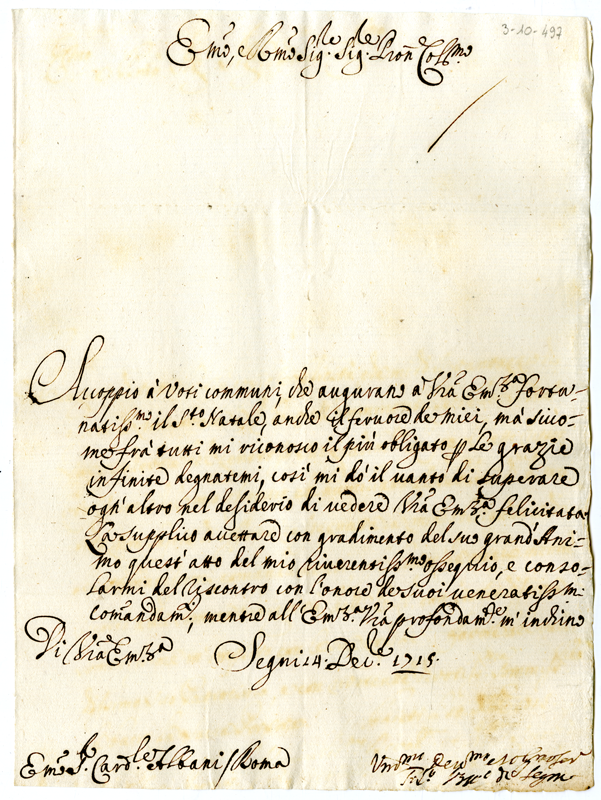 3-10-497
Em̃o, e Rm̃o Sig.re Sig.re Pron̄e Col.mo
Accoppio à voti communi, che augurano à V̄ra Em.za fortu-
natiss.mo il S.to Natale, anche il fervore de miei, mà sico-
me frà tutti mi riconosco il più obligato ꝑ le grazie
infinite degnatemi, così mi dò il vanto di superare
ogn'altro nel desiderio di vedere V̄ra Em.za felicitata.
La supplico accettare con gradimento del suo grand'Ani-
mo quest'atto del mio riverentiss.mo ossequio, e conso-
larmi del riscontro con l'onore de suoi veneratiss.mi
comandam.ti, mentre all'Em.za V̄ra profondam.te m'inchino
Di V̄ra Em.za Segni 14. Dec.e 1715.
Em̃o S.r Card.le Albani / Roma